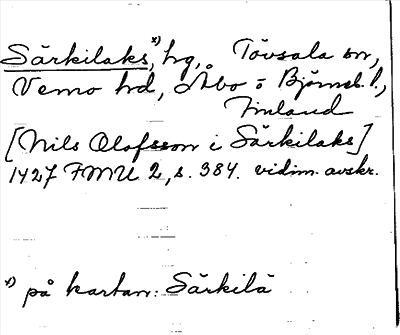 Särkilaks,ˣ⁾ hg, Tövsala sn,
Vemo hd, Åbo o Björneb. l.,
Finland
[Nils Olofsson i Särkilaks]
1427 FMU 2, s. 384. vidim. avskr.
ˣ⁾ på kartan: Särkilä